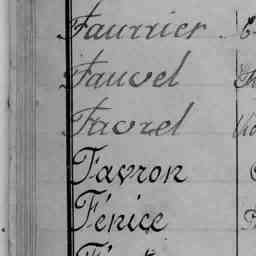 Faurrier
Fauvel
Favrel
Favron
Fénice